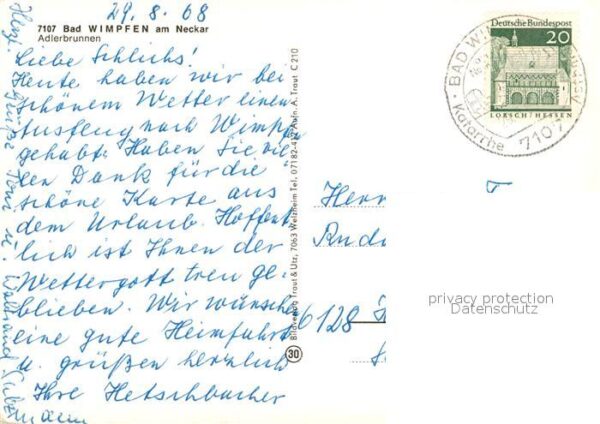 29.8.68
7107 Bad WIMPFEN am Neckar
Adlerbrunnen
Liebe Schlichs!
Heute haben wir bei
schönem Wetter einen
Ausflug nach Wimpf.
gehabt. Haben Sie vie-
len Dank für die
schöne Karte aus
dem Urlaub. Hoffent-
lich ist Ihnen der
Wettergott treu ge-
blieben. Wir wünschen
eine gute Heimfahrt
u. grüßen herzlich
Ihre Hetschbacher
Herzl. Grüße
u.
Bildverlag Traut & Utz, 7063 Welzheim Tel. 07182-4 Aufn. A. Traut C 210
30
Deutsche Bundespost
20
LORSCH/HESSEN
BAD WI
Katarrhe
7107
Herr
6128
privacy protection
Datenschutz